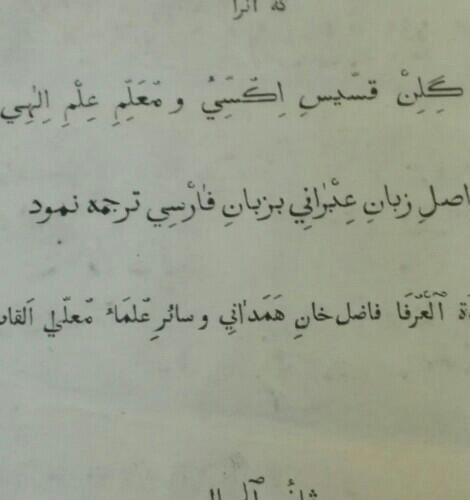 که آنرا
گِلِنْ قسّيسِ اِکسّيُ و مّعَلِّمِ عِلْمِ اِلٰهِي
اصلِ زبانِ عِبْرٰاني بزبانِ فٰارْسِي ترجمه نمود
اْلعُرَفَا فاضل خانِ هَمَدٰانِي و سائرِ عُلمَاءِ مّعلّي